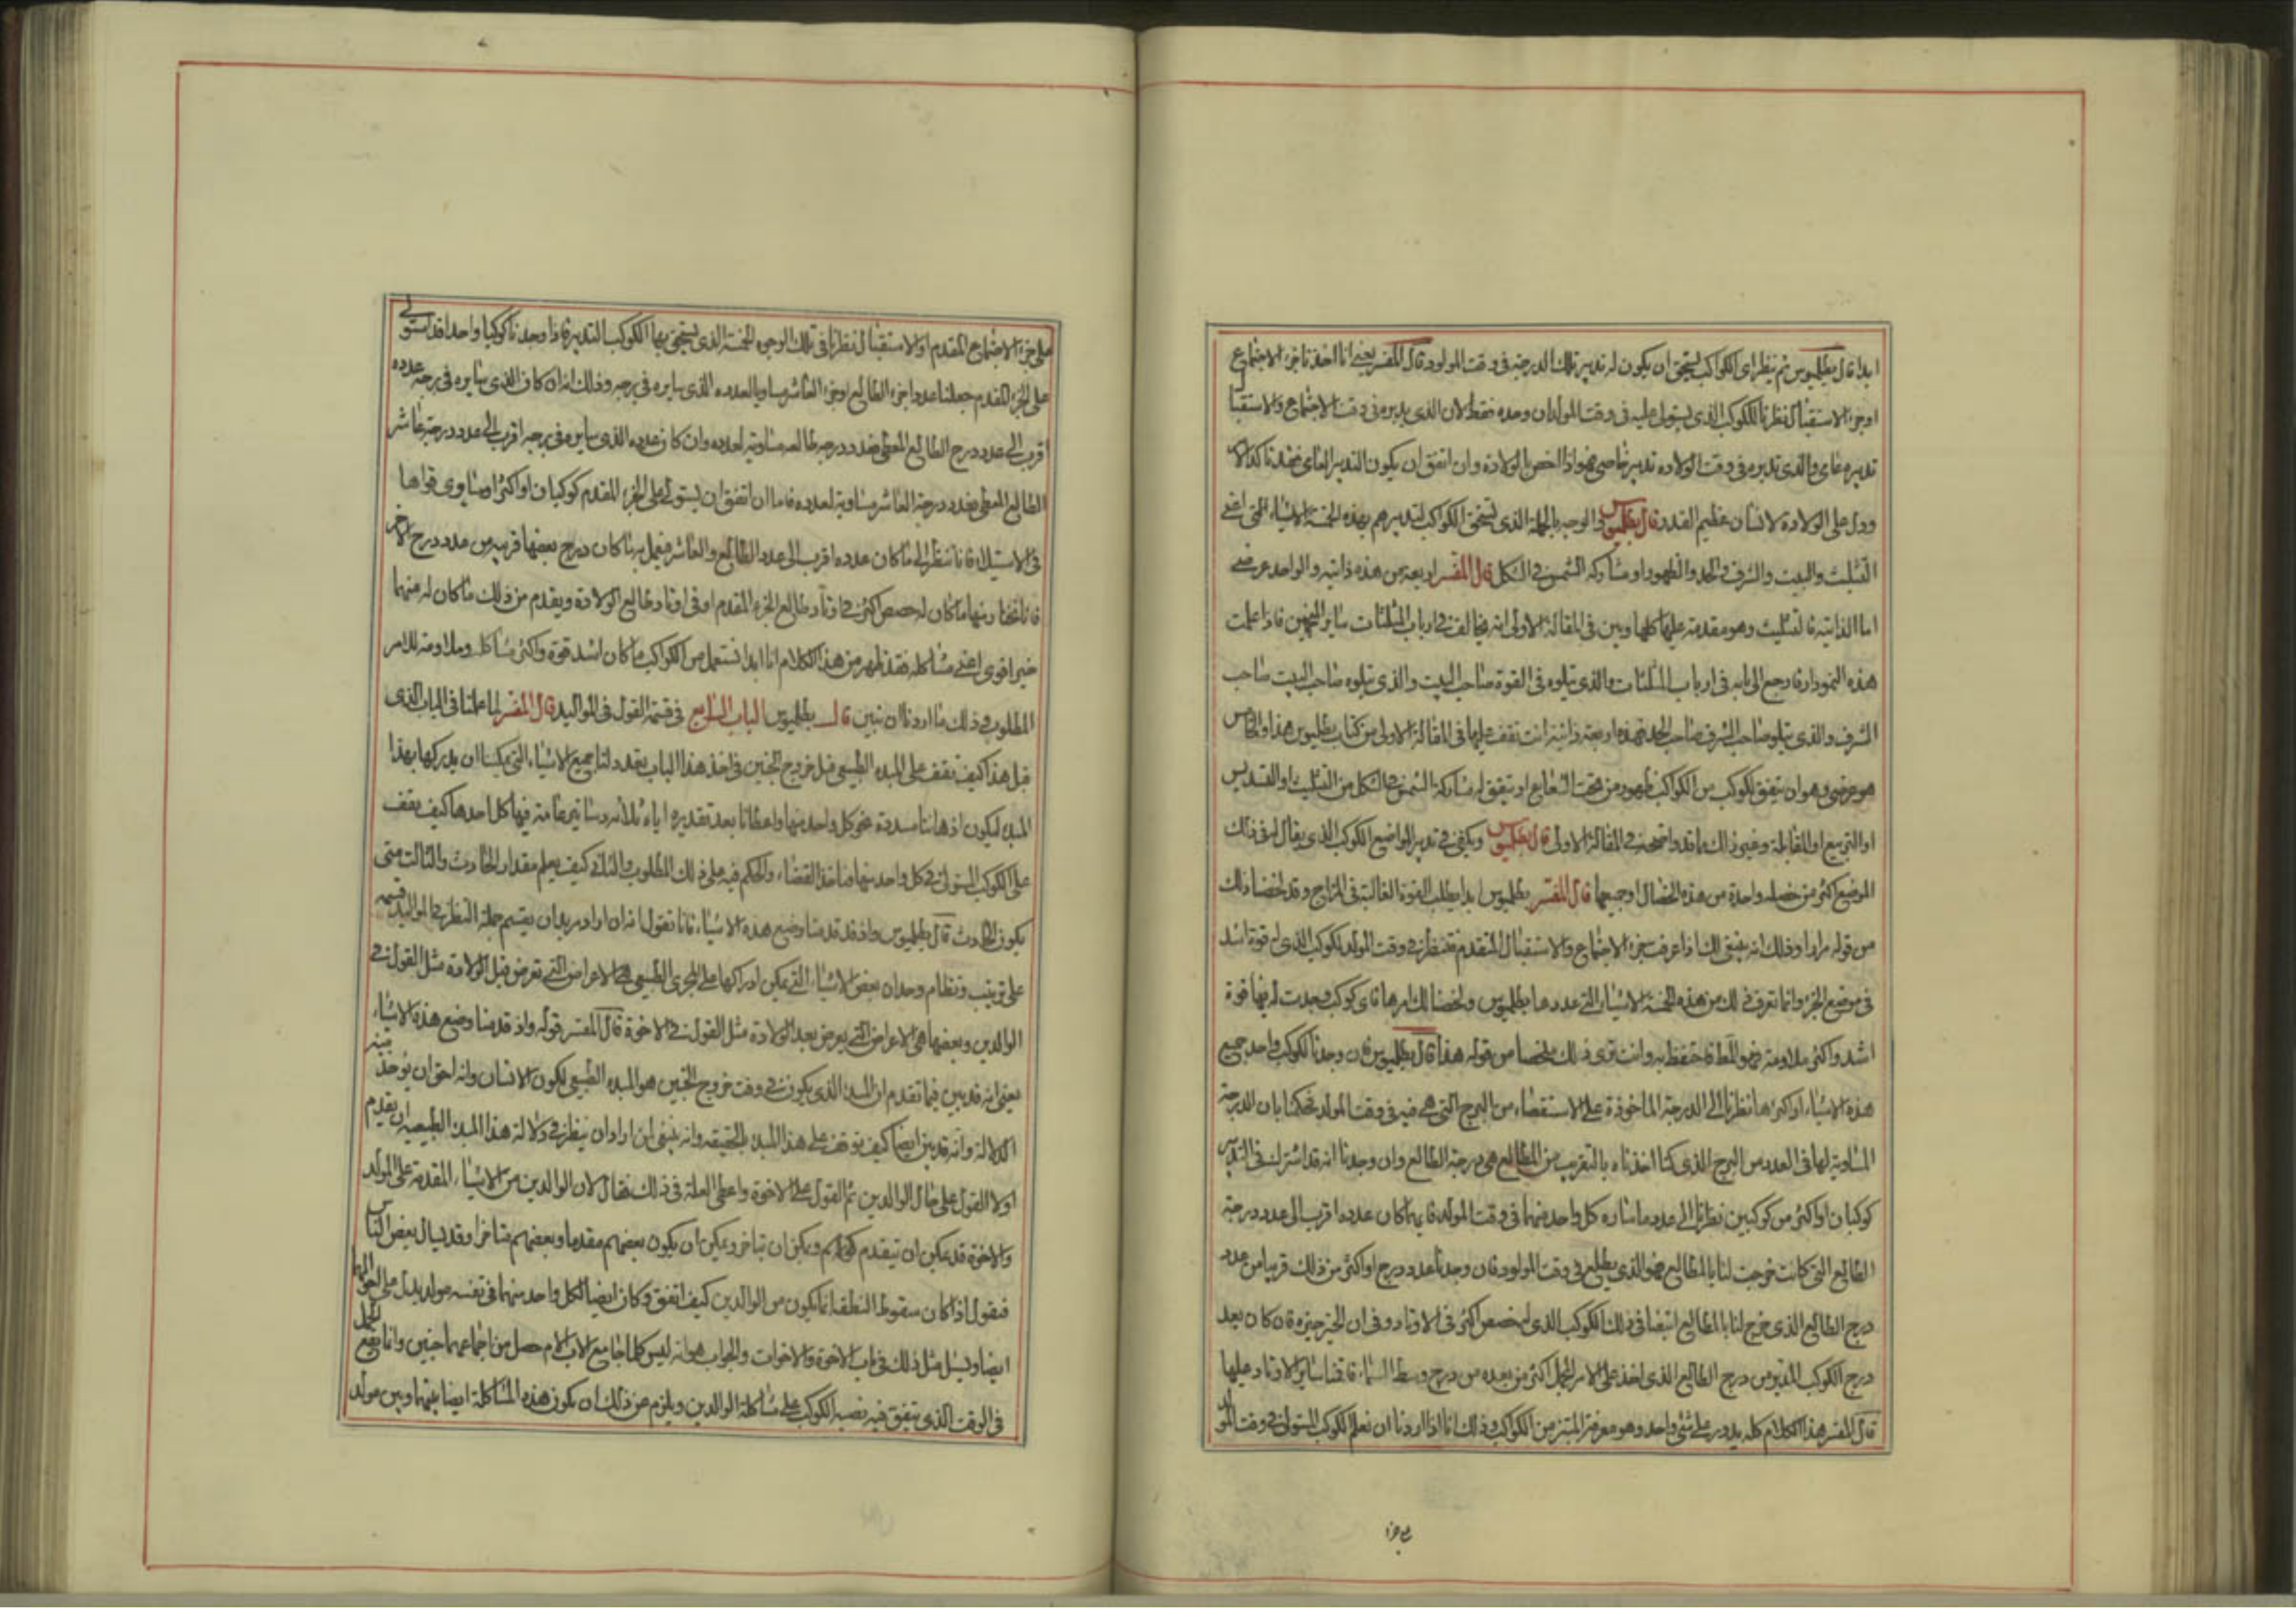 ابدا قال بطلميوس ثم ينظر اى الكواكب يستحق ان يكون له تدبير تلك الدرجة فى وقت المولود قال المفسر يعنى انا اخذنا جزء الاجتماع
او جزء الاستقبال نظرنا الكوكب الذى يستولى عليه فى وقت المولد ان وحده فقط لان الذى يدبره فى وقت الاجتماع والاستقبال
تدبيره عامى والذى تدبيره فى وقت الولاده تدبير خاصى فهو اذا اخص بالولادة وان اتفق ان يكون التدبير العامى فقد تاكد الا
ودل على الولادة لانسان عظيم القدر قال بطلميوس والوجه بالجملة الذى يستحق الكواكب لتدبيرهم بهذه الخمسة الاشياء اعنى
التثليث والبيت والشرف والحد والظهور او مشاركه الشمس فى الشكل قال المفسر اربعة من هذه ذاتية والواحد عرضى
اما الذاتية فالتثليث وهو مقدمة عليها كلها وبين فى المقالة الاولى انه يخالف فى ارباب المثلثات ساير المنجمين فاذا علمت
هذه النمودار فارجع الى بابه فى ارباب المثلثات والذى تتلوه فى القوة صاحب البيت والذى يتلوه صاحب البيت صاحب
الشرف والذى يتلو صاحب الشرف صاحب الحد فهذه اربعة ذاتية انت تقف عليها فى المقالة الاولى من كتاب بطلميوس هذا والخامس
هو عرضى وهو ان يتفق لكوكب من الكواكب ظهور من تحت الشعاع او يتفق له مشاركة الشمس فى الشكل من التثليث او التسديس
او التربيع او المقابلة وغير ذلك مما قد اوضحته فى المقالة الاولى قال بطلميوس ويكفى فى تدبير المواضع الكوكب الذى يقال له فى ذلك
الموضع اكثر من خصلة واحدة من هذه الخصال او جميعها قال المفسر بطلميوس ابدا يطلب القوة الغالبة فى المزاج وقد لخصنا ذلك
من قوله مرارا وذلك انه ينبغى لك اذا عرفت جزء الاجتماع والاستقبال المتقدم فتنظر فى وقت المولد لكوكب الذى له قوة اشد
فى موضع الجزء وانما تعرف ذلك من هذه الخمسة الاشياء التى عددها بطلميوس ولخصنا لك امرها فاى كوكب وجدت له فيها قوة
اشد واكثر ملاومة فهو المطلوب فاحتفظ به وانت ترى ذلك ملخصا من قوله هذا قال بطلميوس فان وجدنا الكوكب واحد جميع
هذه الاشياء او اكثرها نظرنا الى الدرجة الماخوذة على الاستقصاء من البرج التى هى فيه فى وقت المولد فحكمنا بان الدرجة
المساوية لها فى العدد من البرج الذى كنا اخذناه بالتقريب من المطالع هى درجة الطالع وان وجدنا انه قد اشترك فى التدبير
كوكبان او اكثر من كوكبين نظرنا الى عدد ما ساره كل واحد منهما فى وقت المولد فايهما كان عدده اقرب الى عدد درجة
الطالع التى كانت خرجت لنا بالمطالع فهو الذى يطلع فى وقت المولود فان وجدنا عدد درج او اكثر من ذلك قريبا من عدد
درج الطالع الذى خرج لنا بالمطالع اتبعنا فى ذلك الكوكب الذى له حصص اكثر فى الاوتاد وفى ان الخير خيره فان كان بعد
درج الكوكب المدبر من درج الطالع الذى اخذ على الامر المجمل اكثر من بعده من درج وسط السماء فاقمنا ساير الاوتاد عليها
قال المفسر هذا الكلام كله يدور على شى واحد وهو معرفة المبتز من الكواكب وذلك انا اذا اردنا ان نعلم الكوكب المستولى فى وقت المولد
على جزء الاجتماع المقدم او الاستقبال نظرنا فى تلك الوجوه الخمسة الذى يستحق بها الكوكب التدبير فاذا وجدنا كوكبا واحدا قد استولى
على الجزء المقدم جعلنا عدد اجزء الطالع او جزء العاشر مساويا لعدده الذى سايره فى برجه وذلك انه ان كان الذى سايره فى برجه عدده
اقرب الى عدد درج الطالع المعطى فعدد درجه طالعه مساوية لعدده وان كان عدده الذى سايره فى برجه اقرب الى عدد درجة عاشر
الطالع المعطى فعدد درجة العاشر مساوية لعدده فاما ان اتفق ان يستولى على الجزء المقدم كوكبان او اكثر وتساوى قواها
فى الاستيلاء فانا ننظر الى ما كان عدده اقرب الى عدد الطالع والعاشر فنعمل به فان كان درج بعضها قريب من عدد درج الاخر
فانا نختار منها ما كان له حصص اكثر فى اوتاد طالع الجزء المقدم او فى اوتاد طالع الولادة ويقدم من ذلك ما كان له منهما
خير اقوى اعنى مشاكله فقد ظهر من هذا الكلام انا ابدا نستعمل من الكواكب ما كان اشد قوة واكثر مشاكلة وملاومة للامر
المطلوب وذلك ما اردنا ان نبين قال بطلميوس الباب الرابع فى قسمة القول فى المواليد قال المفسر لما علمنا فى الباب الذى
قبل هذا كيف نقف على المبدء الطبيعى قبل خروج الجنين فى اخذ هذا الباب يعدد لنا جميع الاشياء التى يمكننا ان يدركها بهذا
المبدء ليكون اذهاننا مسددة نحو كل واحد منها واعطانا بعد تقديره اياه ثلاثة دساتير عامة فيها كل احدها كيف يقف
على الكوكب المستولى فى كل واحد منها فناخذ القضاء والحكم فيه على ذلك المطلوب والثانى كيف يعلم مقدار الحادث والثالث متى
يكون الحادث قال بطلميوس واذ قد قدمنا وضع هذه الاشياء فانا نقول انه ان اراد مريد ان يقسم جملة النظر فى المواليد قسمه
على ترتيب ونظام وجد ان بعض الاشياء التى يمكن ادراكها على المجرى الطبيعى هى الاعراض التى تعرض قبل الولادة مثل القول فى
الوالدين وبعضها هى الاعراض التى يعرض بعد الولادة مثل القول فى الاخوة قال المفسر قوله واذ قدمنا وضع هذه الاشياء
يعنى انه قد بين فيما تقدم ان المبدء الذى يكون فى وقت خروج الجنين هو المبدء الطبيعى لكون الانسان وانه احق ان يوخذ منه
الدلالة وانه قد بين ايضا كيف نوقف على هذا المبدء بالحقيقه وانه ينبغى لمن اراد ان ينظر فى دلالة هذا المبدء الطبيعيه ان يقدم
اولا القول على حال الوالدين ثم القول على الاخوة واعطى العلة فى ذلك فقال لان الوالدين من الاشياء المقدمة على المولد
والاخوة قد يمكن ان يتقدم كونهم ويمكن ان يتاخر ويمكن ان يكون بعضهم مقدما وبعضهم متاخرا وقد يسال بعض الناس
فنقول اذا كان سقوط النطفة انما يكون من الوالدين كيف اتفق وكان ايضا لكل واحد منهما فى نفسه مولد يدل على احوالهما
ايضا ويسئل مثل ذلك فى باب الاخوة والاخوات والجواب هو انه ليس كلما جامع الاب الام حصل من اجماعهما جنين وانما يقع الحمل
فى الوقت الذى يتفق فيه نصبة الكواكب على مشاكلة الوالدين ويلزم من ذلك ان يكون هذه المشاكلة ايضا بينهما وبين مولد